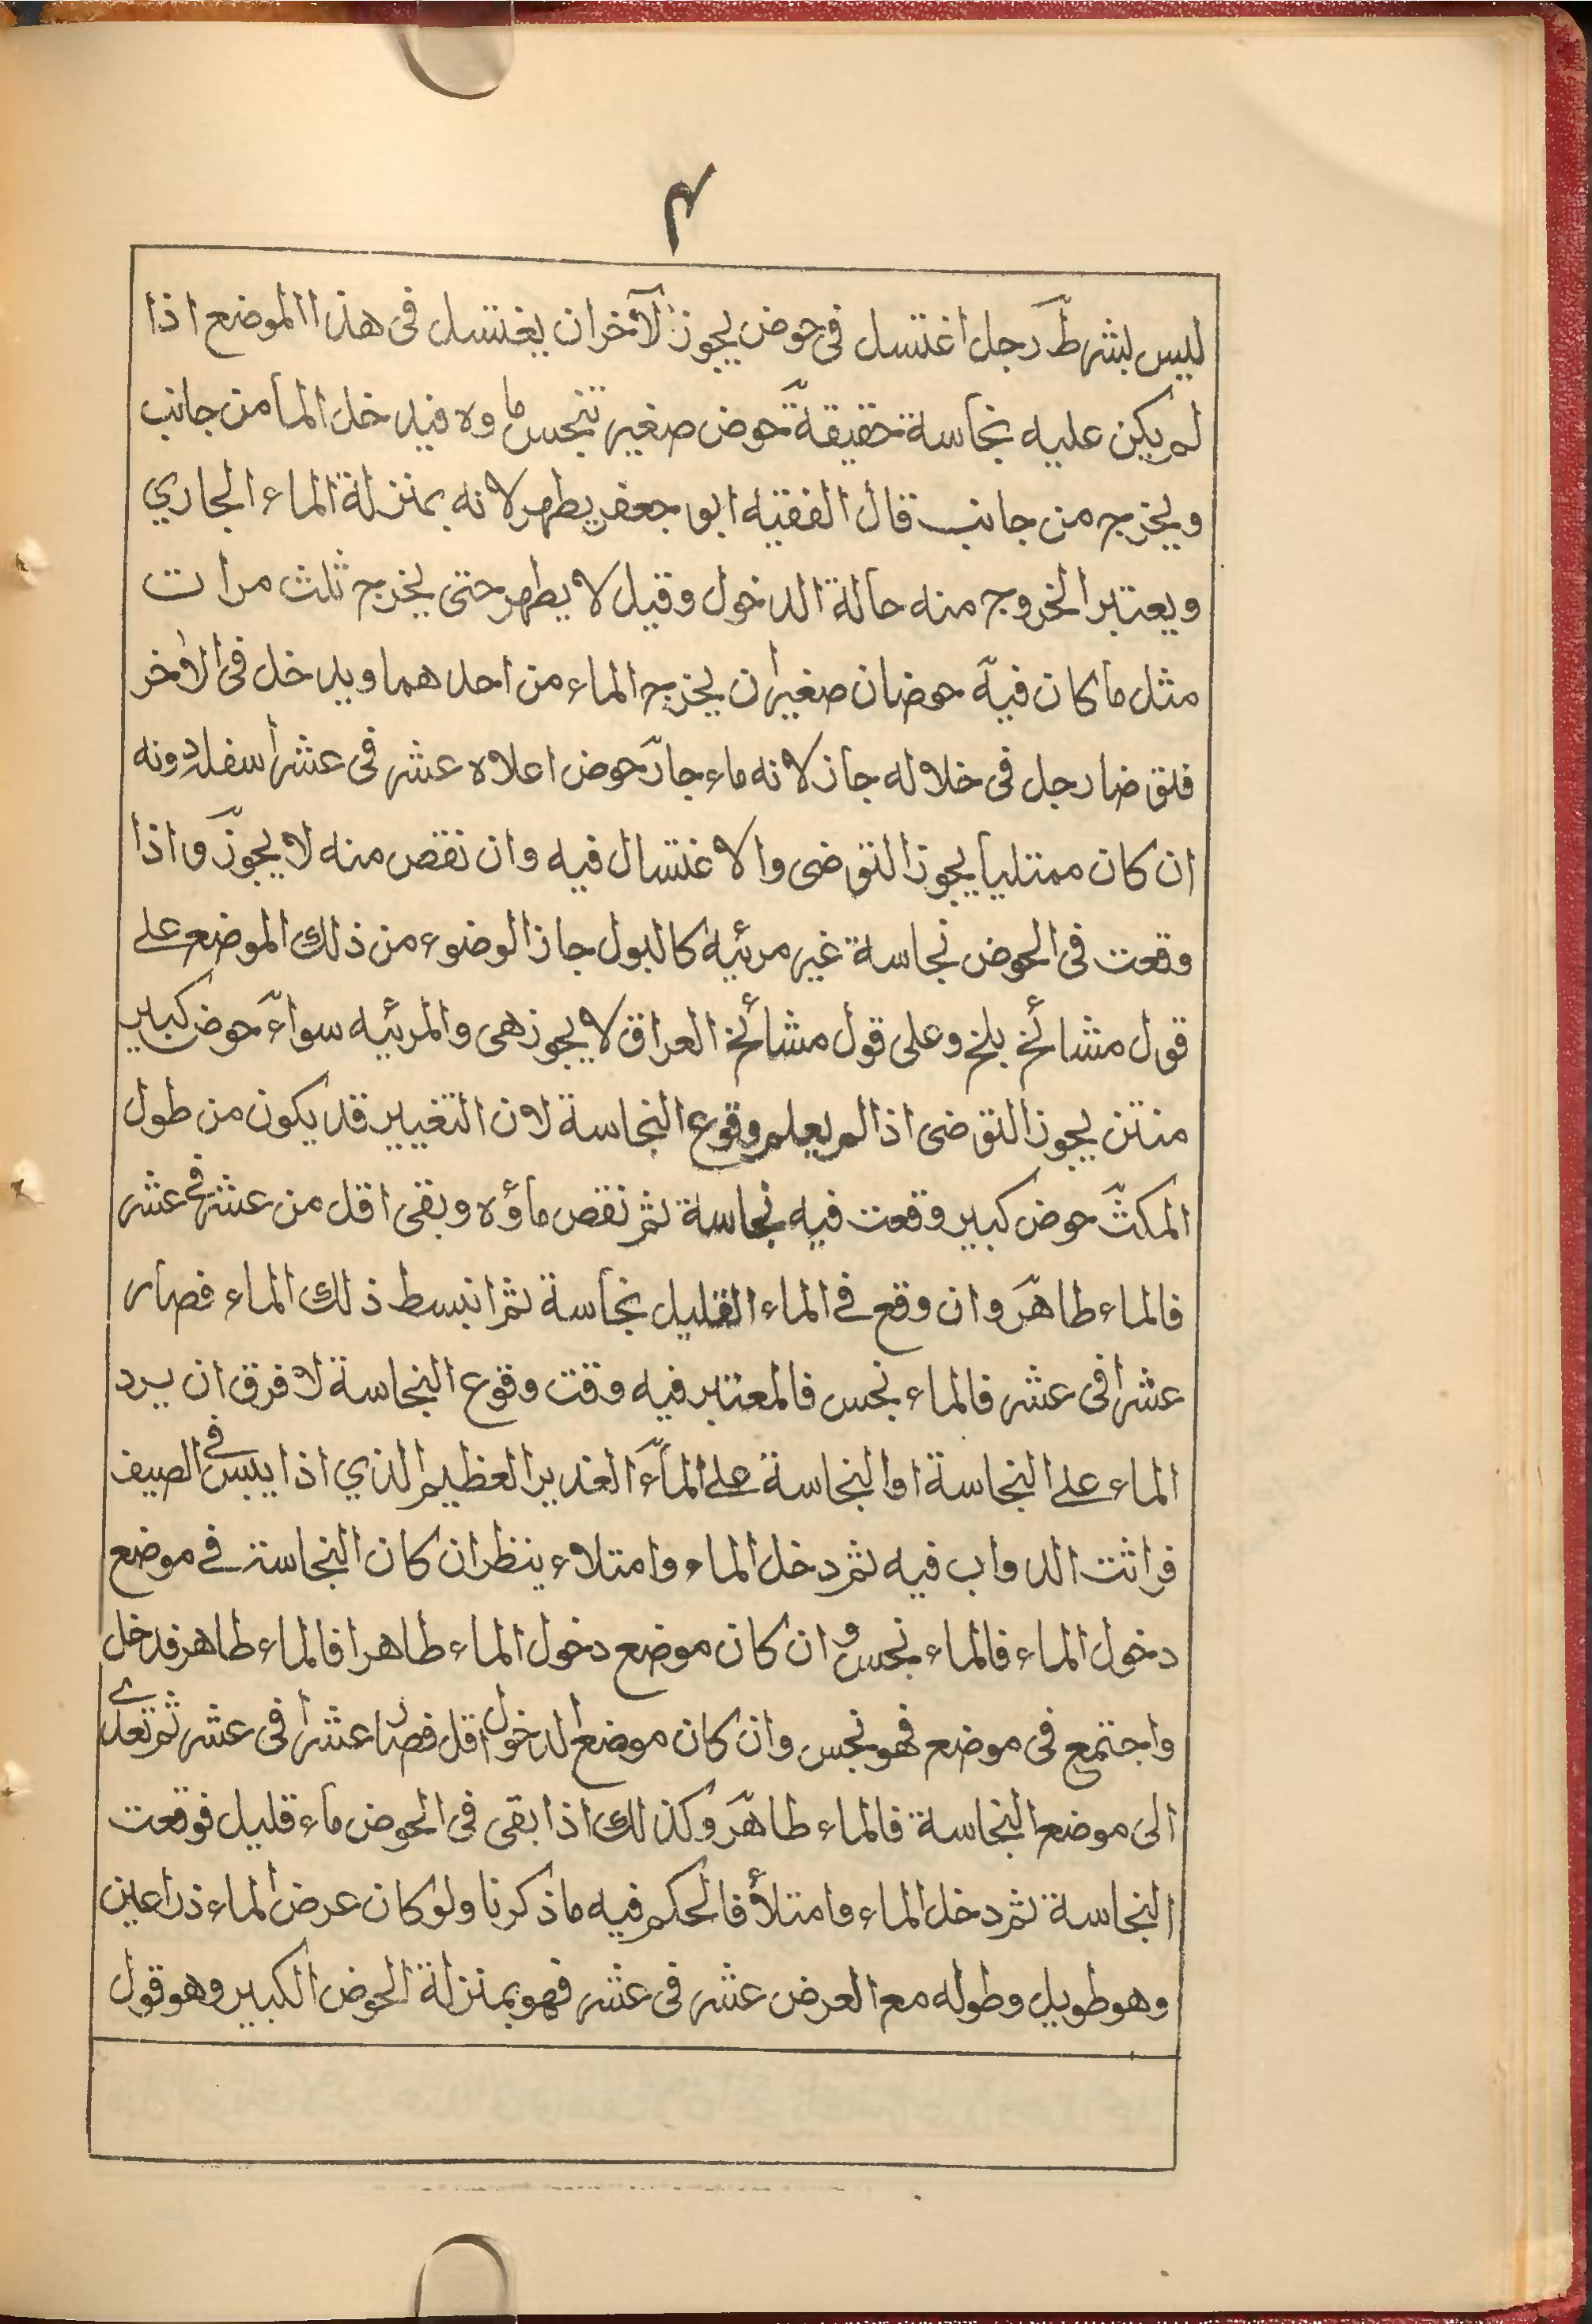 ۴
ليس بشرط رجل اغتسل فى حوض يجوز لآخر ان يغتسل فى هذا الموضع اذا
لم يكن عليه نجاسة حقيقة حوض صغير تنجس ماوه فيدخل الما من جانب
ويخرج من جانب قال الفقيه ابو جعفر يطهر لانه بمنزلة الماء الجاري
ويعتبر الخروج منه حالة الدخول وقيل لا يطهر حتى يخرج ثلث مرات
مثل ما كان فيه حوضان صغيران يخرج الماء من احدهما ويدخل فى الاخر
فتوضا رجل فى خلاله جاز لانه ماء جار حوض اعلاه عشر فى عشر أسفله دونه
ان كان ممتليا يجوز التوضى والاغتسال فيه وان نقص منه لا يجوز واذا
وقعت فى الحوض نجاسة غير مرئيه كالبول جاز الوضوء من ذلك الموضع على
قول مشائخ بلخ وعلى قول مشائخ العراق لا يجوز هى والمرئيه سواء حوض كبير
منتن يجوز التوضى اذا لم يعلم وقوع النجاسة لان التغيير قد يكون من طول
المكث حوض كبير وقعت فيه نجاسة ثم نقص ماؤه وبقى اقل من عشر فى عشر
فالماء طاهر وان وقع فى الماء القليل نجاسة ثم انبسط ذلك الماء فصار
عشرا فى عشر فالماء نجس فالمعتبر فيه وقت وقوع النجاسة لا فرق ان يرد
الماء على النجاسة او النجاسة على الماء الغدير العظيم الذي اذا يبس فى الصيف
فراثت الدواب فيه ثم دخل الماء وامتلاء ينظر ان كان النجاسة فى موضع
دخول الماء فالماء نجس و ان كان موضع دخول الماء طاهرا فالماء طاهر فدخل
واجتمع فى موضع فهو نجس وان كان موضع الدخول اقل فصار عشرا فى عشر ثم تعدى
الى موضع النجاسة فالماء طاهر وكذلك اذا بقى فى الحوض ماء قليل فوقعت
النجاسة ثم دخل الماء وامتلأ فالحكم فيه ما ذكرنا ولو كان عرض الماء ذراعين
وهو طويل وطوله مع العرض عشر فى عشر فهو بمنزلة الحوض الكبير وهو قول